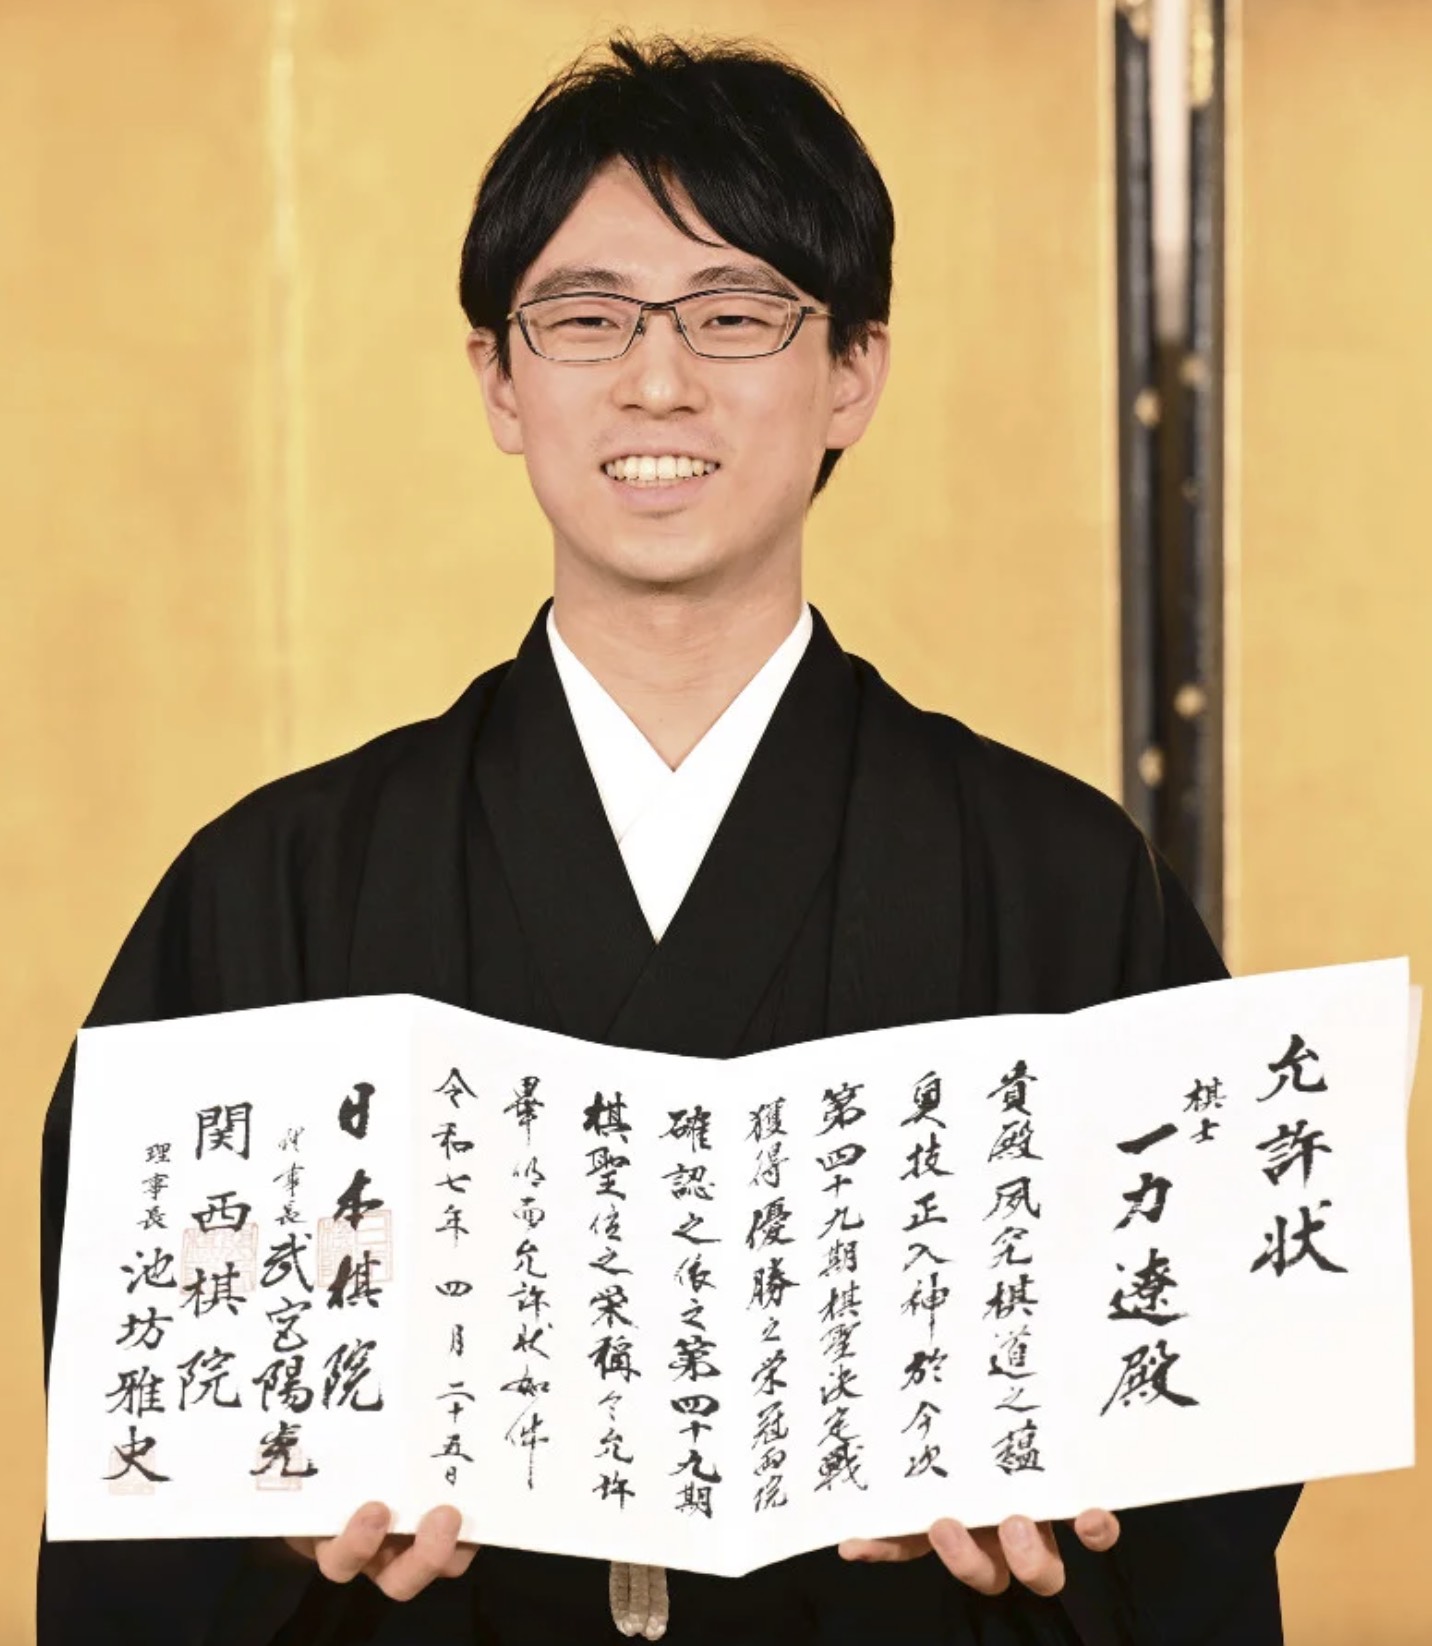 允許状
棋士
一力遼殿
貴殿夙究棋道之蘊
奥技正入神於今次
第四十九期棋聖決定戦
獲得優勝之栄冠両院
確認之依之第四十九期
棋聖位之栄稱令允許
畢仍而允許状如件
令和七年四月二十五日
日本棋院
理事長 武宮陽光
関西棋院
理事長 池坊雅史